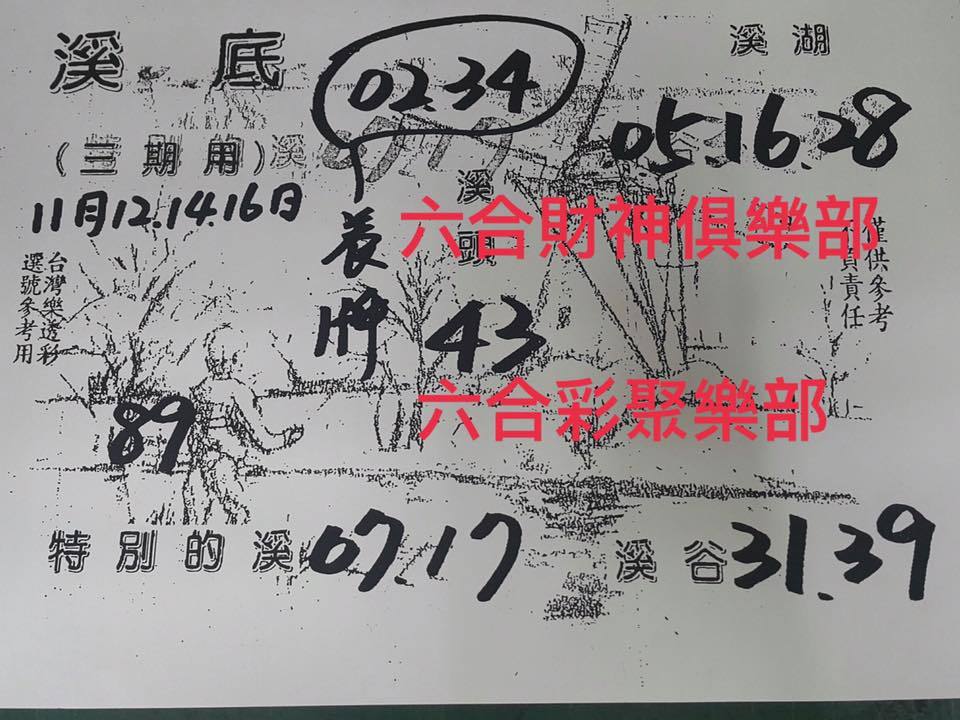 溪底
02.34
溪湖
(三期用)溪
05.16.28
11月12.14.16日
養牌
溪頭
六合財神俱樂部
僅供參考
責責任
台灣樂透彩
選號參考用
43
六合彩聚樂部
89
特別的溪 07.17
溪谷 31.39